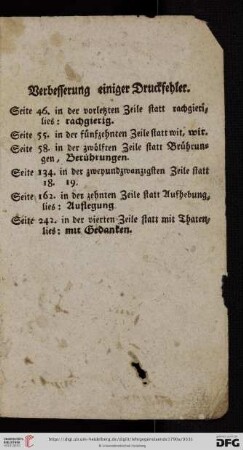 Verbesserung einiger Druckfehler.
Seite 46. in der vorletzten Zeile statt rachgieri,
lies: rachgierig.
Seite 55. in der fünfzehnten Zeile statt wit, wir.
Seite 58. in der zwölften Zeile statt Brührun-
gen, Berührungen.
Seite 134. in der zweyundzwanzigsten Zeile statt
18. 19.
Seite 162. in der zehnten Zeile statt Aufhebung,
lies: Auflegung
Seite 242. in der vierten Zeile statt mit Thaten,
lies: mit Gedanken.
UNIVERSITÄTS-
BIBLIOTHEK
HEIDELBERG
Gefördert durch die
DFG